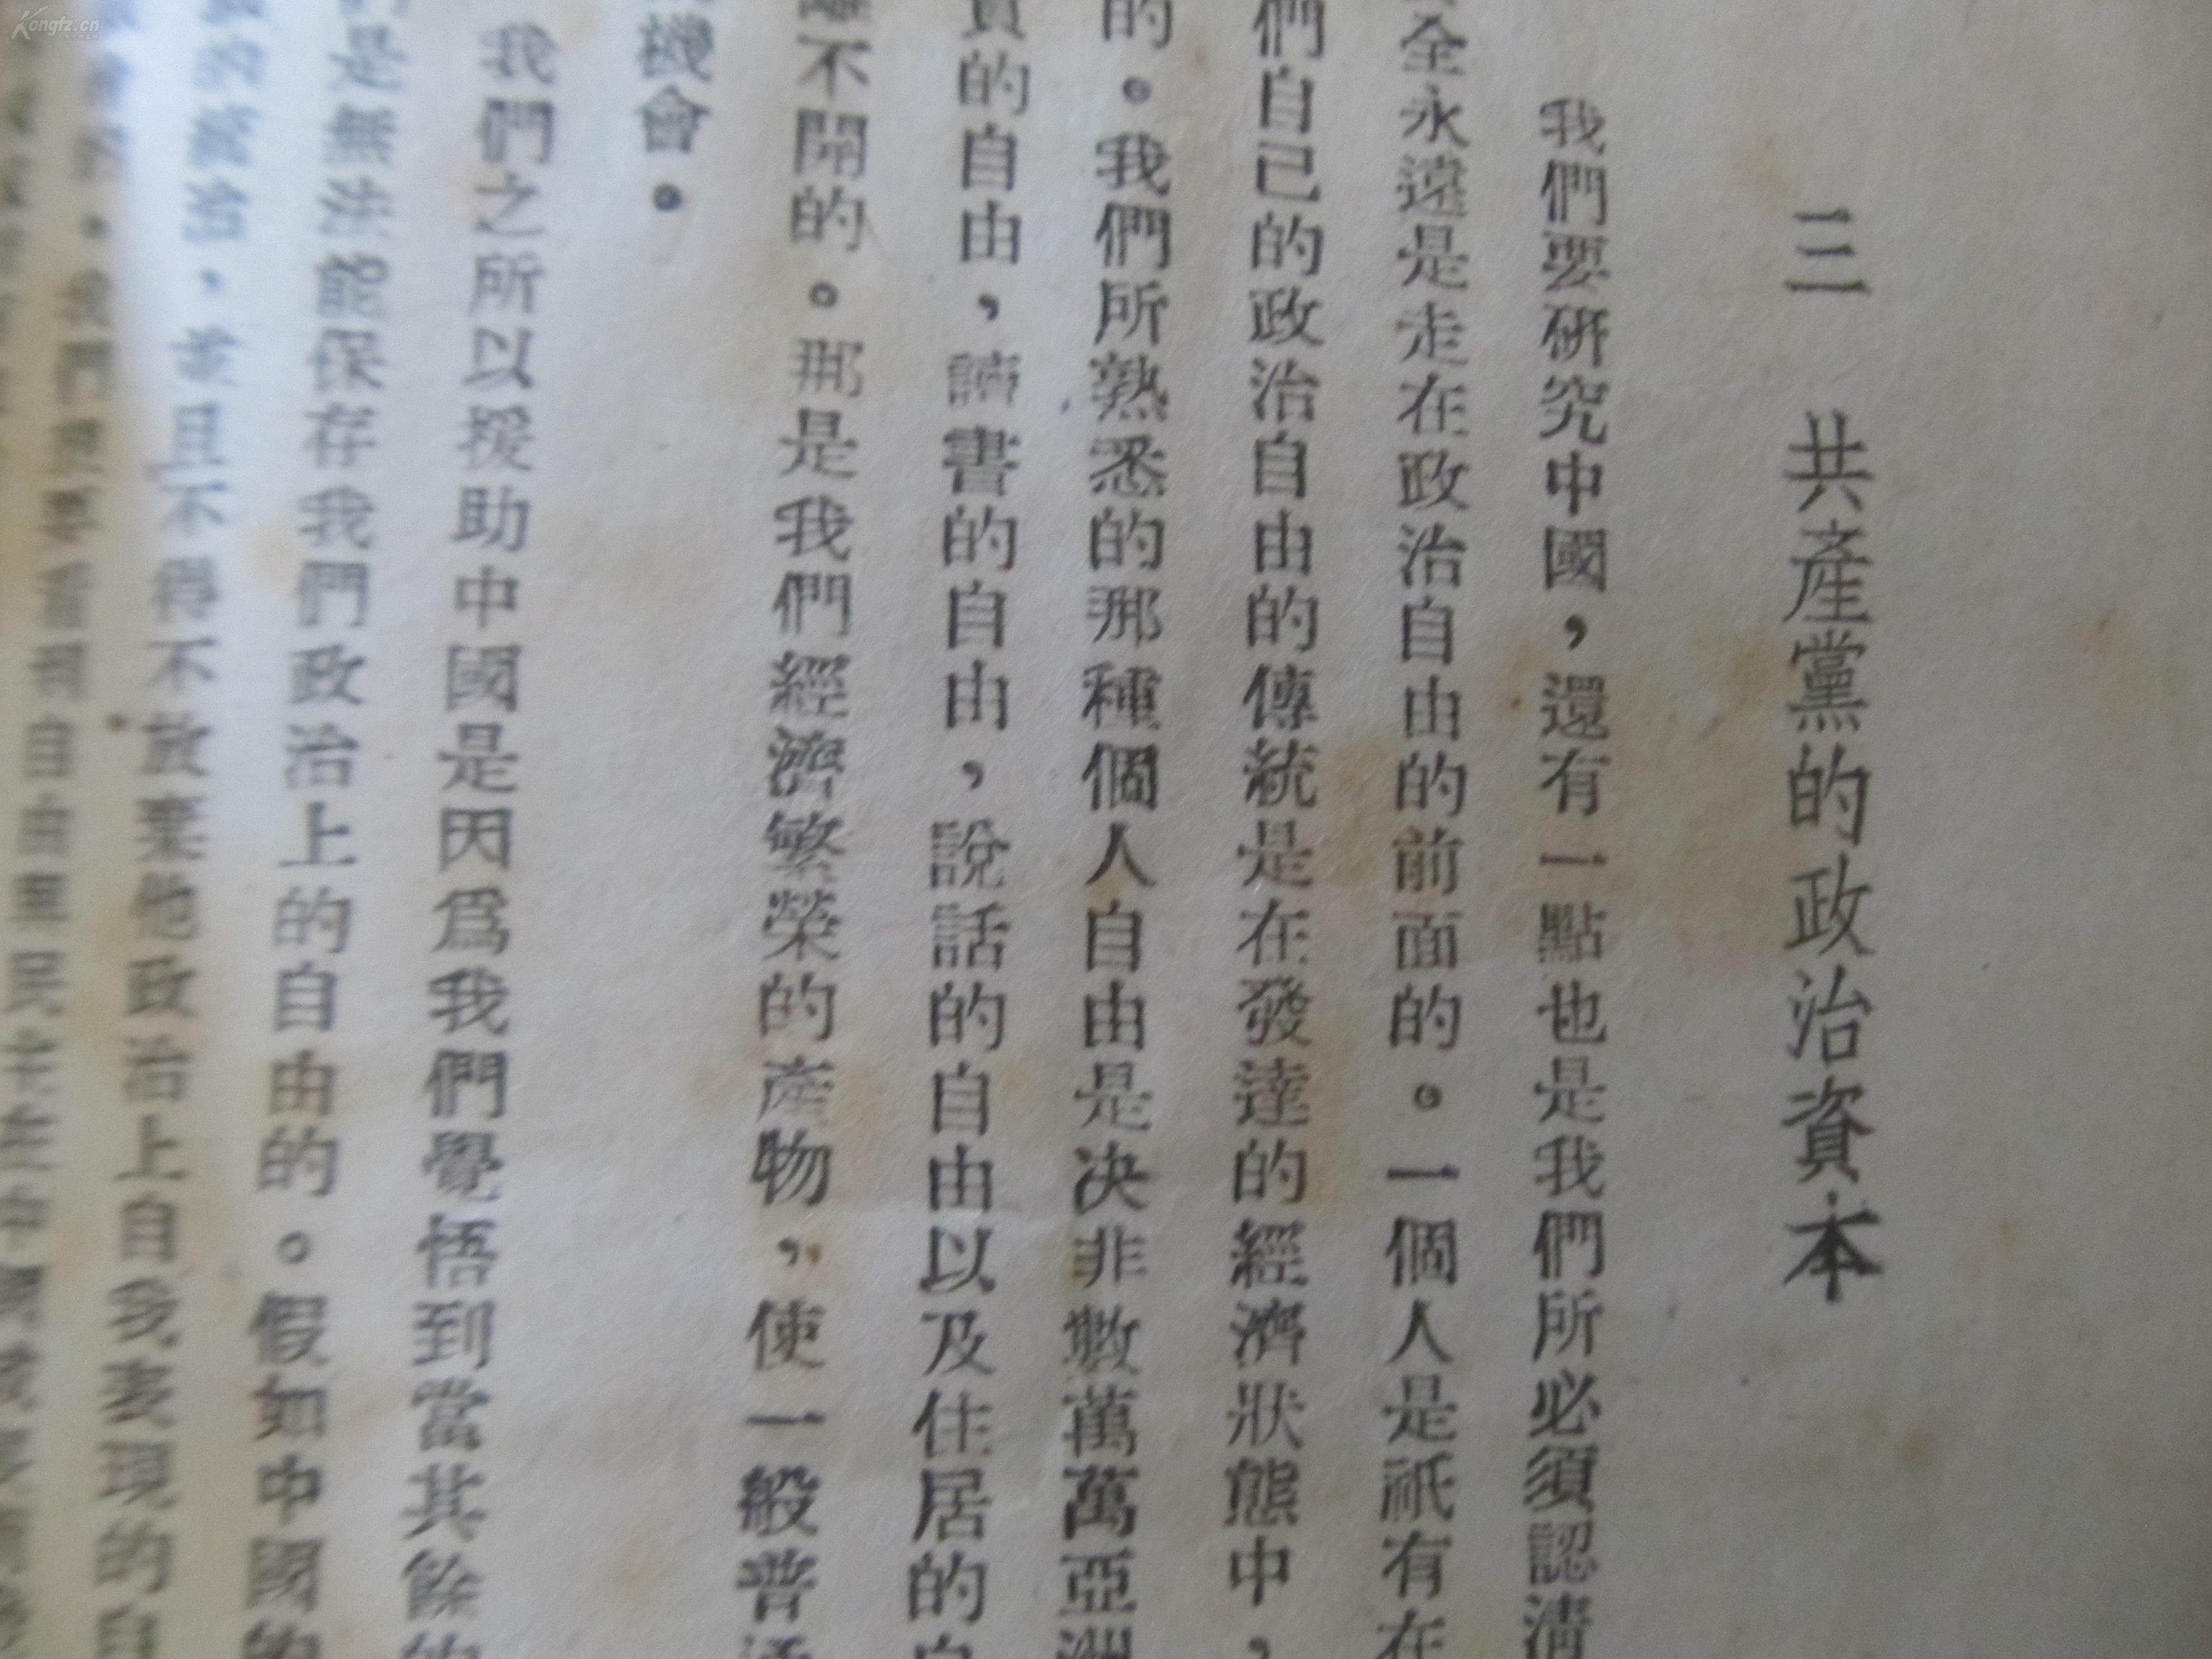 三　共產黨的政治資本
我們要研究中國，還有一點也是我們所必須認清
全永遠是走在政治自由的前面的。一個人是祇有在
們自己的政治自由的傳統是在發達的經濟狀態中，
的。我們所熟悉的那種個人自由是决非數萬萬亞洲
的自由，讀書的自由，說話的自由以及住居的自
離不開的。那是我們經濟繁榮的產物，使一般普通
機會。
我們之所以援助中國是因爲我們覺悟到當其餘的
們是無法能保存我們政治上的自由的。假如中國的
的統治，並且不得不放棄他政治上自我表現的自
我們想要看到自由與民主在中國
Kongfz.cn